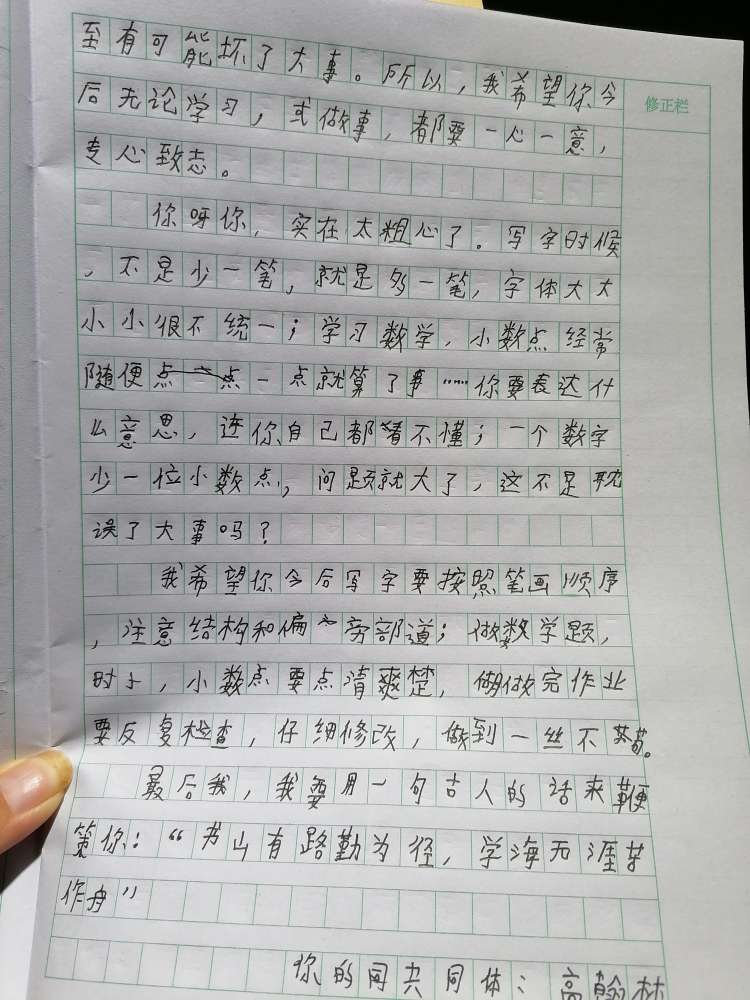 至有可能坏了大事。所以，我希望你今
修正栏
后无论学习，或做事，都要一心一意，
专心致志。
你呀你，实在太粗心了。写字时候
，不是少一笔，就是多一笔，字体大大
小小很不统一；学习数学，小数点经常
随便点一点一点就算了事……你要表达什
么意思，连你自己都看不懂；一个数字
少一位小数点，问题就大了，这不是耽
误了大事吗？
我希望你今后写字要按照笔画顺序
，注意结构和偏旁部道；做数学题，
时，小数点要点清爽楚，做完作业
要反复检查，仔细修改，做到一丝不苟。
最后我，我要用一句古人的话来鞭
策你：“书山有路勤为径，学海无涯苦
作舟”
你的同共同体：高翰林